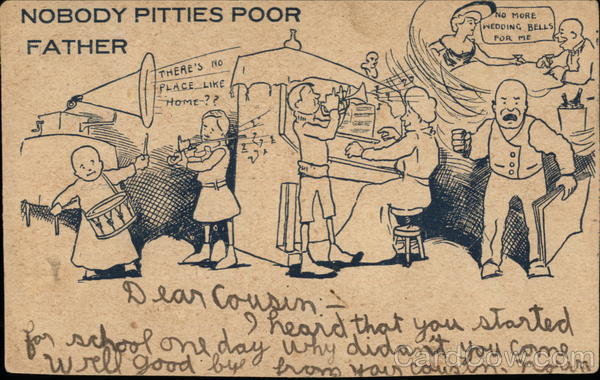 NOBODY PITTIES POOR
FATHER
THERE'S NO
PLACE LIKE
HOME-??
NO MORE
WEDDING BELLS
FOR ME
Dear Cousin:-
I heard that you started
for school one day why didn't you come
Well good bye from your cousin
CardCow.com